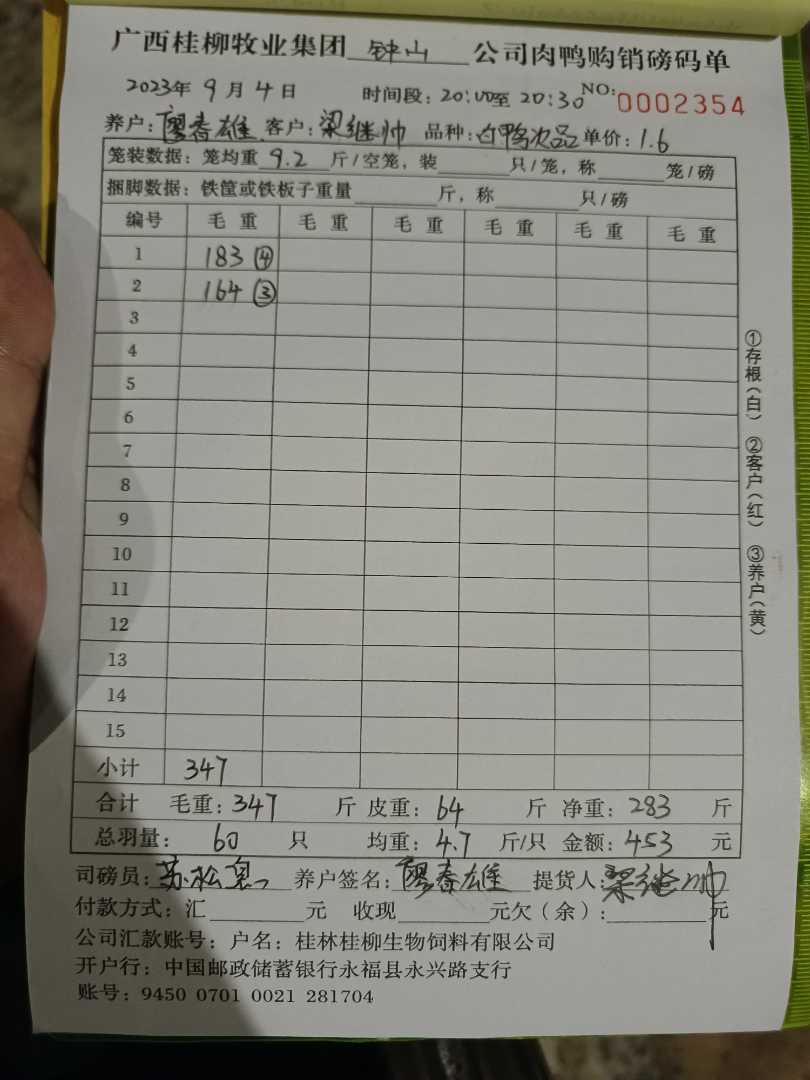 广西桂柳牧业集团 钟山 公司肉鸭购销磅码单
2023年 9 月 4 日 时间段: 20:00至 20:30 NO: 0002354
养户: 廖春雄 客户: 梁继帅 品种: 白鸭次品 单价: 1.6
笼装数据: 笼均重 9.2 斤/空笼, 装 只/笼, 称 笼/磅
捆脚数据: 铁筐或铁板子重量 斤, 称 只/磅
编号 毛重 毛重 毛重 毛重 毛重 毛重
1 183 ④
2 164 ③
3
4
5
6
7
8
9
10
11
12
13
14
15
小计 347
合计 毛重: 347 斤 皮重: 64 斤 净重: 283 斤
总羽量: 60 只 均重: 4.7 斤/只 金额: 453 元
司磅员: 苏松 养户签名: 廖春雄 提货人: 梁继帅
付款方式: 汇 元 收现 元欠(余): 元
公司汇款账号: 户名: 桂林桂柳生物饲料有限公司
开户行: 中国邮政储蓄银行永福县永兴路支行
账号: 9450 0701 0021 281704
①存根(白) ②客户(红) ③养户(黄)